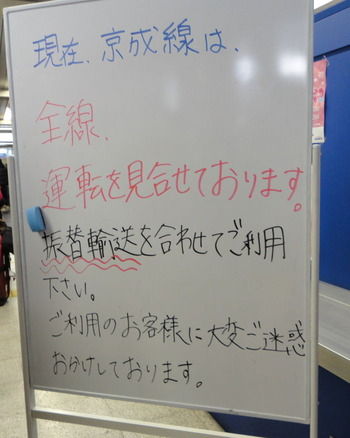 現在、京成線は、
全線、
運転を見合せております。
振替輸送を合わせてご利用
下さい。
ご利用のお客様に大変ご迷惑
おかけしております。